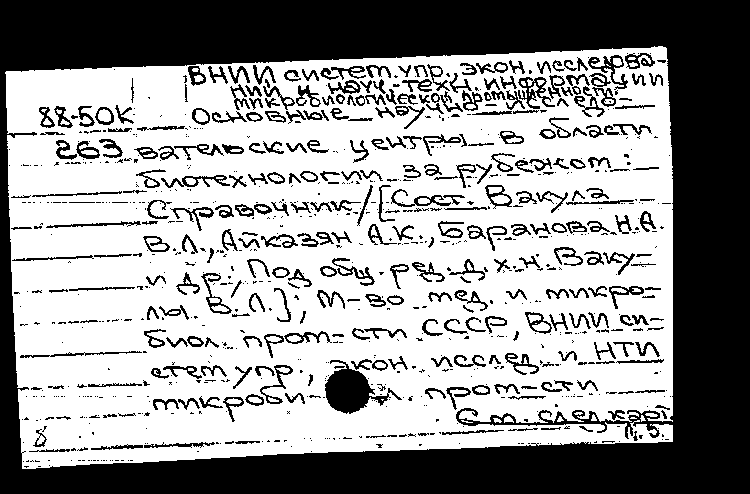 ВНИИ систем.упр., экон. исследова-
ний и науч.-техн. информации
микробиологической промышленности.
88-50К Основные научно-исследо-
263 вательские центры в области
биотехнологии за рубежом:
Справочник/[Сост. Вакула
В.Л., Айказян А.К., Баранова Н.А.
и др.; Под общ. ред. д.х.н. Ваку-
лы В.Л.]; М-во мед. и микро-
биол. пром-сти СССР, ВНИИ си-
стем упр., экон. исслед. и НТИ
микроби- л. пром-сти
См. след.карт.
8